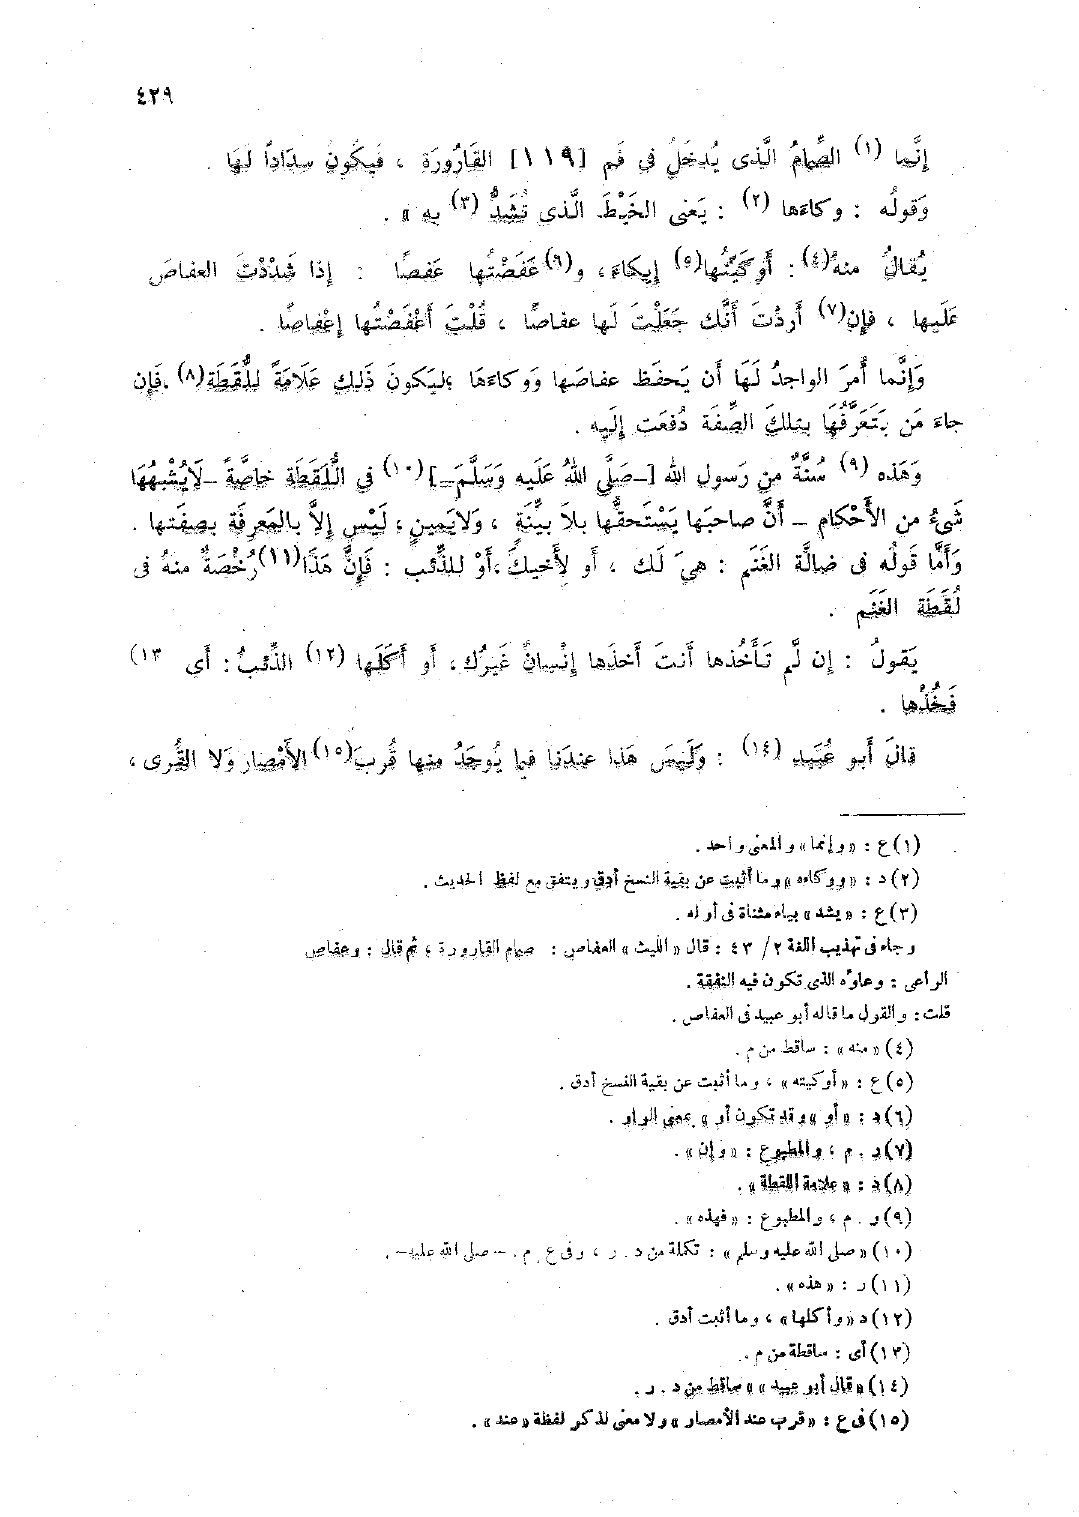 ٤٢٩
إنَّما (١) الصِّمامُ الَّذى يُدخَلُ فى فَم [١١٩] القَارُورَة ، فَيكُونُ سِدَاداً لهَا .
وَقولُه : وكاءَها (٢) : يَعنى الخَيْطَ الَّذى تُشَدُّ (٣) به » .
يُقالُ منهُ (٤) : أَوكَيْتُها (٥) إيكاءً ، و (٩) عَفَصْتُها عَفصًا : إذا شَدَدْتَ العفاصَ
عَلَيها ، فإن (٧) أَردْتَ أَنَّك جَعَلْتَ لَها عفاصًا ، قُلْتَ أَعْفَصْتُها إعْفاصًا .
وَإنَّما أُمرَ الواجدُ لَهَا أَن يَحفَظ عفاصَها وَوكاءَهَا ؛ ليَكونَ ذَلِك عَلَامَةً للُّقَطَة (٨) ، فَإن
جاءَ مَن يَتَعَرَّفُهَا بتلكَ الصِّفَة دُفعَت إلَيه .
وَهَذه (٩) سُنَّةٌ من رَسول الله [ -صَلَّى اللهُ عَلَيه وَسَلَّمَ- ] (١٠) فى اللُّقَطَة خاصَّةً -لَايُشْبهُهَا
شَىءٌ من الأَحْكام - أَنَّ صاحبَها يَسْتَحقُّها بلاَ بيِّنَةٍ ، وَلايَمينٍ ، لَيْس إلاَّ بالمَعرفَة بصفَتها .
وَأَمَّا قَولُه فى ضالَّة الغَنَم : هىَ لَك ، أَو لأَخيكَ ، أَوْ للذِّئب : فَإنَّ هَذَا (١١) رُخْصَةٌ منهُ فى
لُقَطَة الغَنَم .
يَقولُ : إن لَّم تَأْخُذها أَنتَ أَخَذَها إنْسانٌ غَيرُك ، أَو أَكَلَها (١٢) الذِّئبُ : أَى (١٣
فَخُذْها .
قالَ أَبو عُبَيد (١٤) : وَلَيسَ هَذا عندَنا فيما يُوجَدُ منها قُربَ (١٥) الأَمْصار وَلا القُرى ،
(١) ع : «وإنما» والمعنى واحد .
(٢) د : «ووكاءه» وما أثبت عن بقية النسخ أدق ويتفق مع لفظ الحديث .
(٣) ع : «يشد» بياء مثناة فى أوله .
وجاء فى تهذيب اللغة ٢/ ٤٣ : قال «الليث» العفاص : صمام القارورة ، ثم قال : وعفاص
الراعى : وعاؤه الذى تكون فيه النفقة .
قلت : والقول ما قاله أبو عبيد فى العفاص .
(٤) «منه» : ساقط من م .
(٥) ع : «أوكيته» ، وما أثبت عن بقية النسخ أدق .
(٦) د : «أو» وقد تكون أو» بمعنى الواو .
(٧) ر . م ، والمطبوع : «وإن» .
(٨) د : «علامة اللقطة» .
(٩) ر . م ، والمطبوع : «فهذه» .
(١٠) «صلى الله عليه وسلم» : تكملة من د . ر ، وفى ع . م . -صلى الله عليه- .
(١١) ر : «هذه» .
(١٢) د «وأكلها» ، وما أثبت أدق .
(١٣) أى : ساقطة من م .
(١٤) «قال أبو عبيد» ساقط من د . ر .
(١٥) فى ع : «قرب عند الأمصار» ولا معنى لذكر لفظة «عند» .